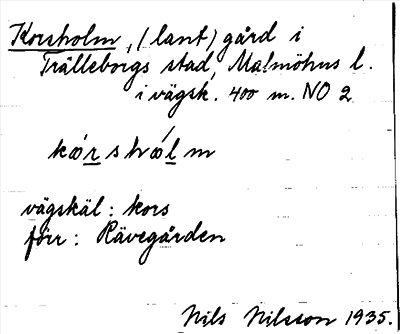 Korsholm, (lant) gård i
Trälleborgs stad, Malmöhus l.
i vägsk. 400 m. NO 2
vägskäl: kors
förr: Rävegården
Nils Nilsson 1935.